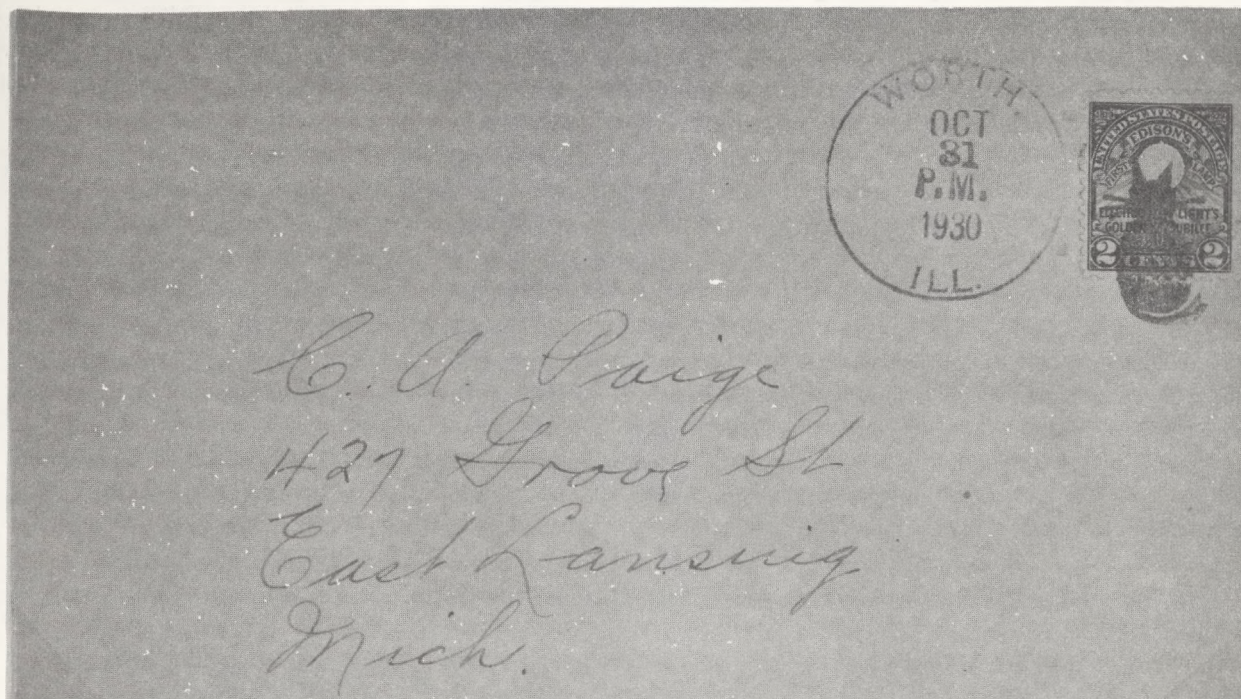 WORTH
OCT
31
P.M.
1930
ILL.
UNITED STATES POSTAGE
EDISON'S
FIRST LAMP
ELECTRIC LIGHT'S
GOLDEN JUBILEE
2 CENTS 2
C. A. Paige
427 Grove St
East Lansing
Mich.